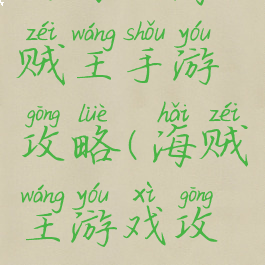 zéi wáng shǒu yóu
贼王手游
gōng lüè hǎi zéi
攻略(海贼
wáng yóu xì gōng
王游戏攻